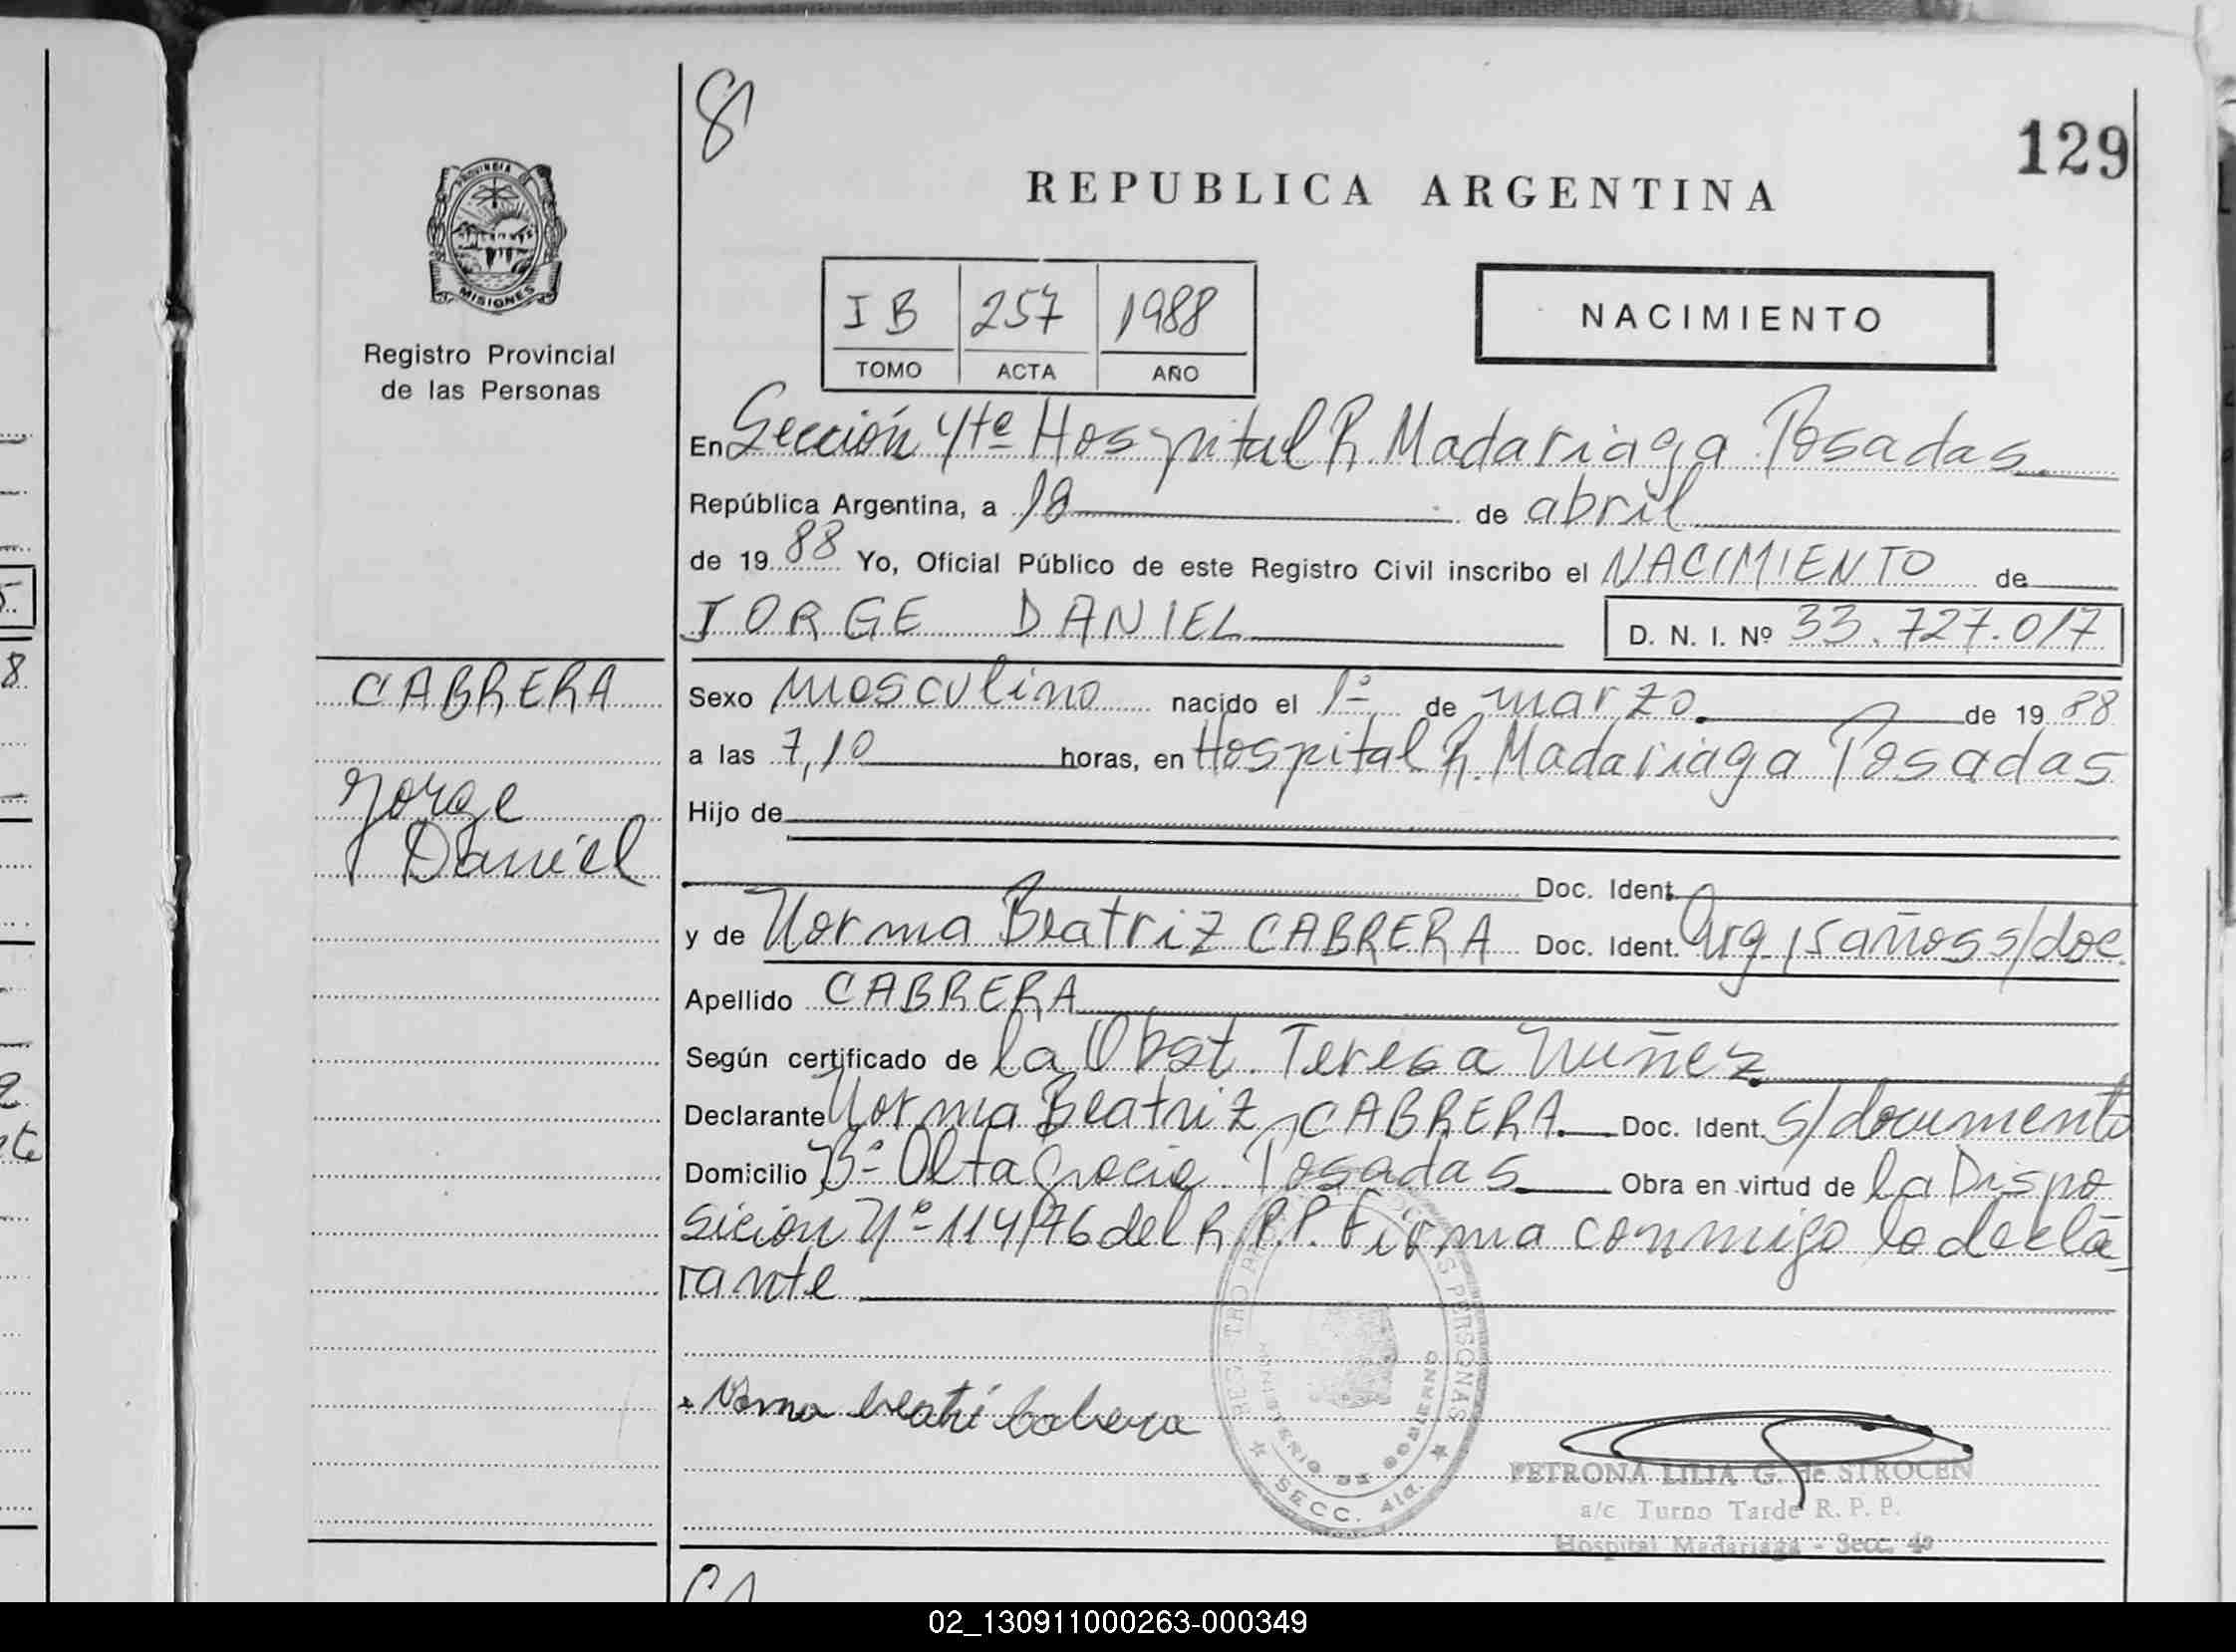 8
129
REPUBLICA ARGENTINA
PROVINCIA DE
MISIONES
Registro Provincial
de las Personas
I B 257 1988
TOMO ACTA AÑO
NACIMIENTO
En Sección 4te Hospital R. Madariaga Posadas.
República Argentina, a 18 de abril
de 19 88 Yo, Oficial Público de este Registro Civil inscribo el NACIMIENTO de
JORGE DANIEL D. N. I. Nº 33.727.017
CABRERA
Jorge
Daniel
Sexo masculino nacido el 1º de marzo de 19 88
a las 7,10 horas, en Hospital R. Madariaga Posadas
Hijo de
Doc. Ident.
y de Norma Beatriz CABRERA Doc. Ident. Arg. 15 años s/doc.
Apellido CABRERA
Según certificado de la Obst. Teresa Nuñez
Declarante Norma Beatriz CABRERA Doc. Ident. s/documento
Domicilio Bº Alta Gracia Posadas Obra en virtud de la Dispo
sición Nº 114/76 del R.P.P. Firma conmigo la decla
rante
Norma beatri Cabrera
REGISTRO PERSONAS
MINISTERIO DE GOBIERNO
SECC. 4ta.
PETRONA LILIA G. de STROCEN
a/c Turno Tarde R. P. P.
Hospital Madariaga - Secc. 4a
02_130911000263-000349